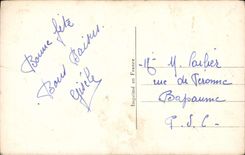 Bonne fête
Bons Baisers
Gisèle
Imprimé en France
Mr M.
rue de Peronne
Bapaume
P. d. C.